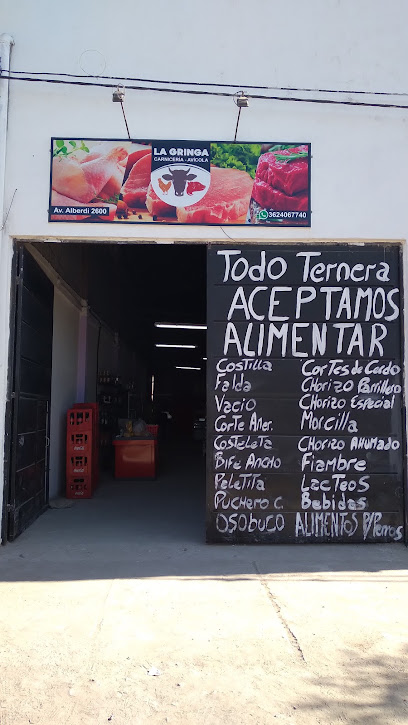 LA GRINGA
CARNICERÍA - AVÍCOLA
Av. Alberdi 2600
3624067740
Todo Ternera
ACEPTAMOS
ALIMENTAR
Costilla
Falda
Vacio
Corte Amer.
Costeleta
Bife Ancho
Paletila
Puchero C.
Osobuco
Cortes de Cerdo
Chorizo Parrillero
Chorizo Especial
Morcilla
Chorizo Ahumado
Fiambre
Lacteos
Bebidas
ALIMENTOS P/Perros